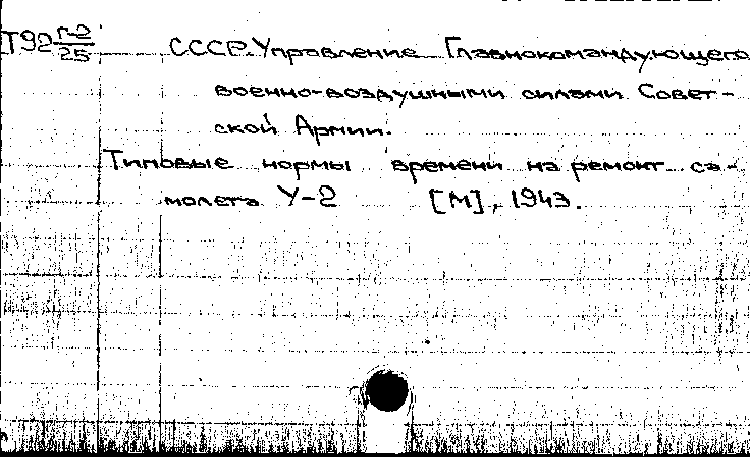 Т92 Г-2/25
СССР. Управление Главнокомандующего
военно-воздушными силами Совет-
ской Армии.
Типовые нормы времени на ремонт са-
молета У-2 [М], 1943.